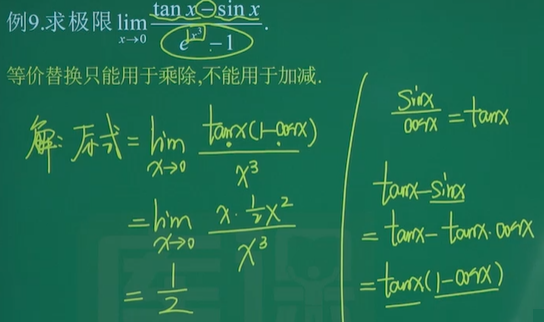 例9.求极限 lim x→0 (tan x − sin x)/(e^{x³} − 1).
等价替换只能用于乘除,不能用于加减.
解: 原式 = lim x→0 tanx(1-cosx)/x³
= lim x→0 (x·½x²)/x³
= 1/2
sinx/cosx = tanx
tanx-sinx
= tanx-tanx·cosx
= tanx(1-cosx)